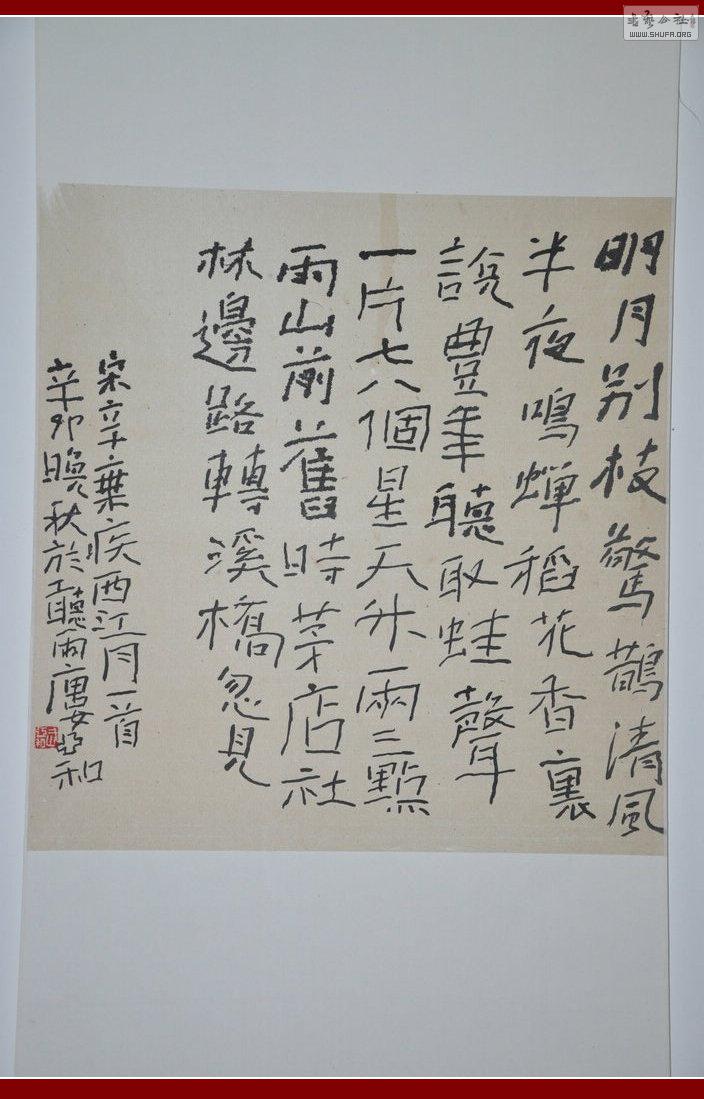 明月别枝驚鵲清風
半夜鳴蟬稻花香裏
說豐年聽取蛙聲
一片七八個星天外兩三點
雨山前舊時茅店社
林邊路轉溪橋忽見
宋辛棄疾西江月一首
辛卯晚秋於聽雨和
WWW.SHUFA.ORG